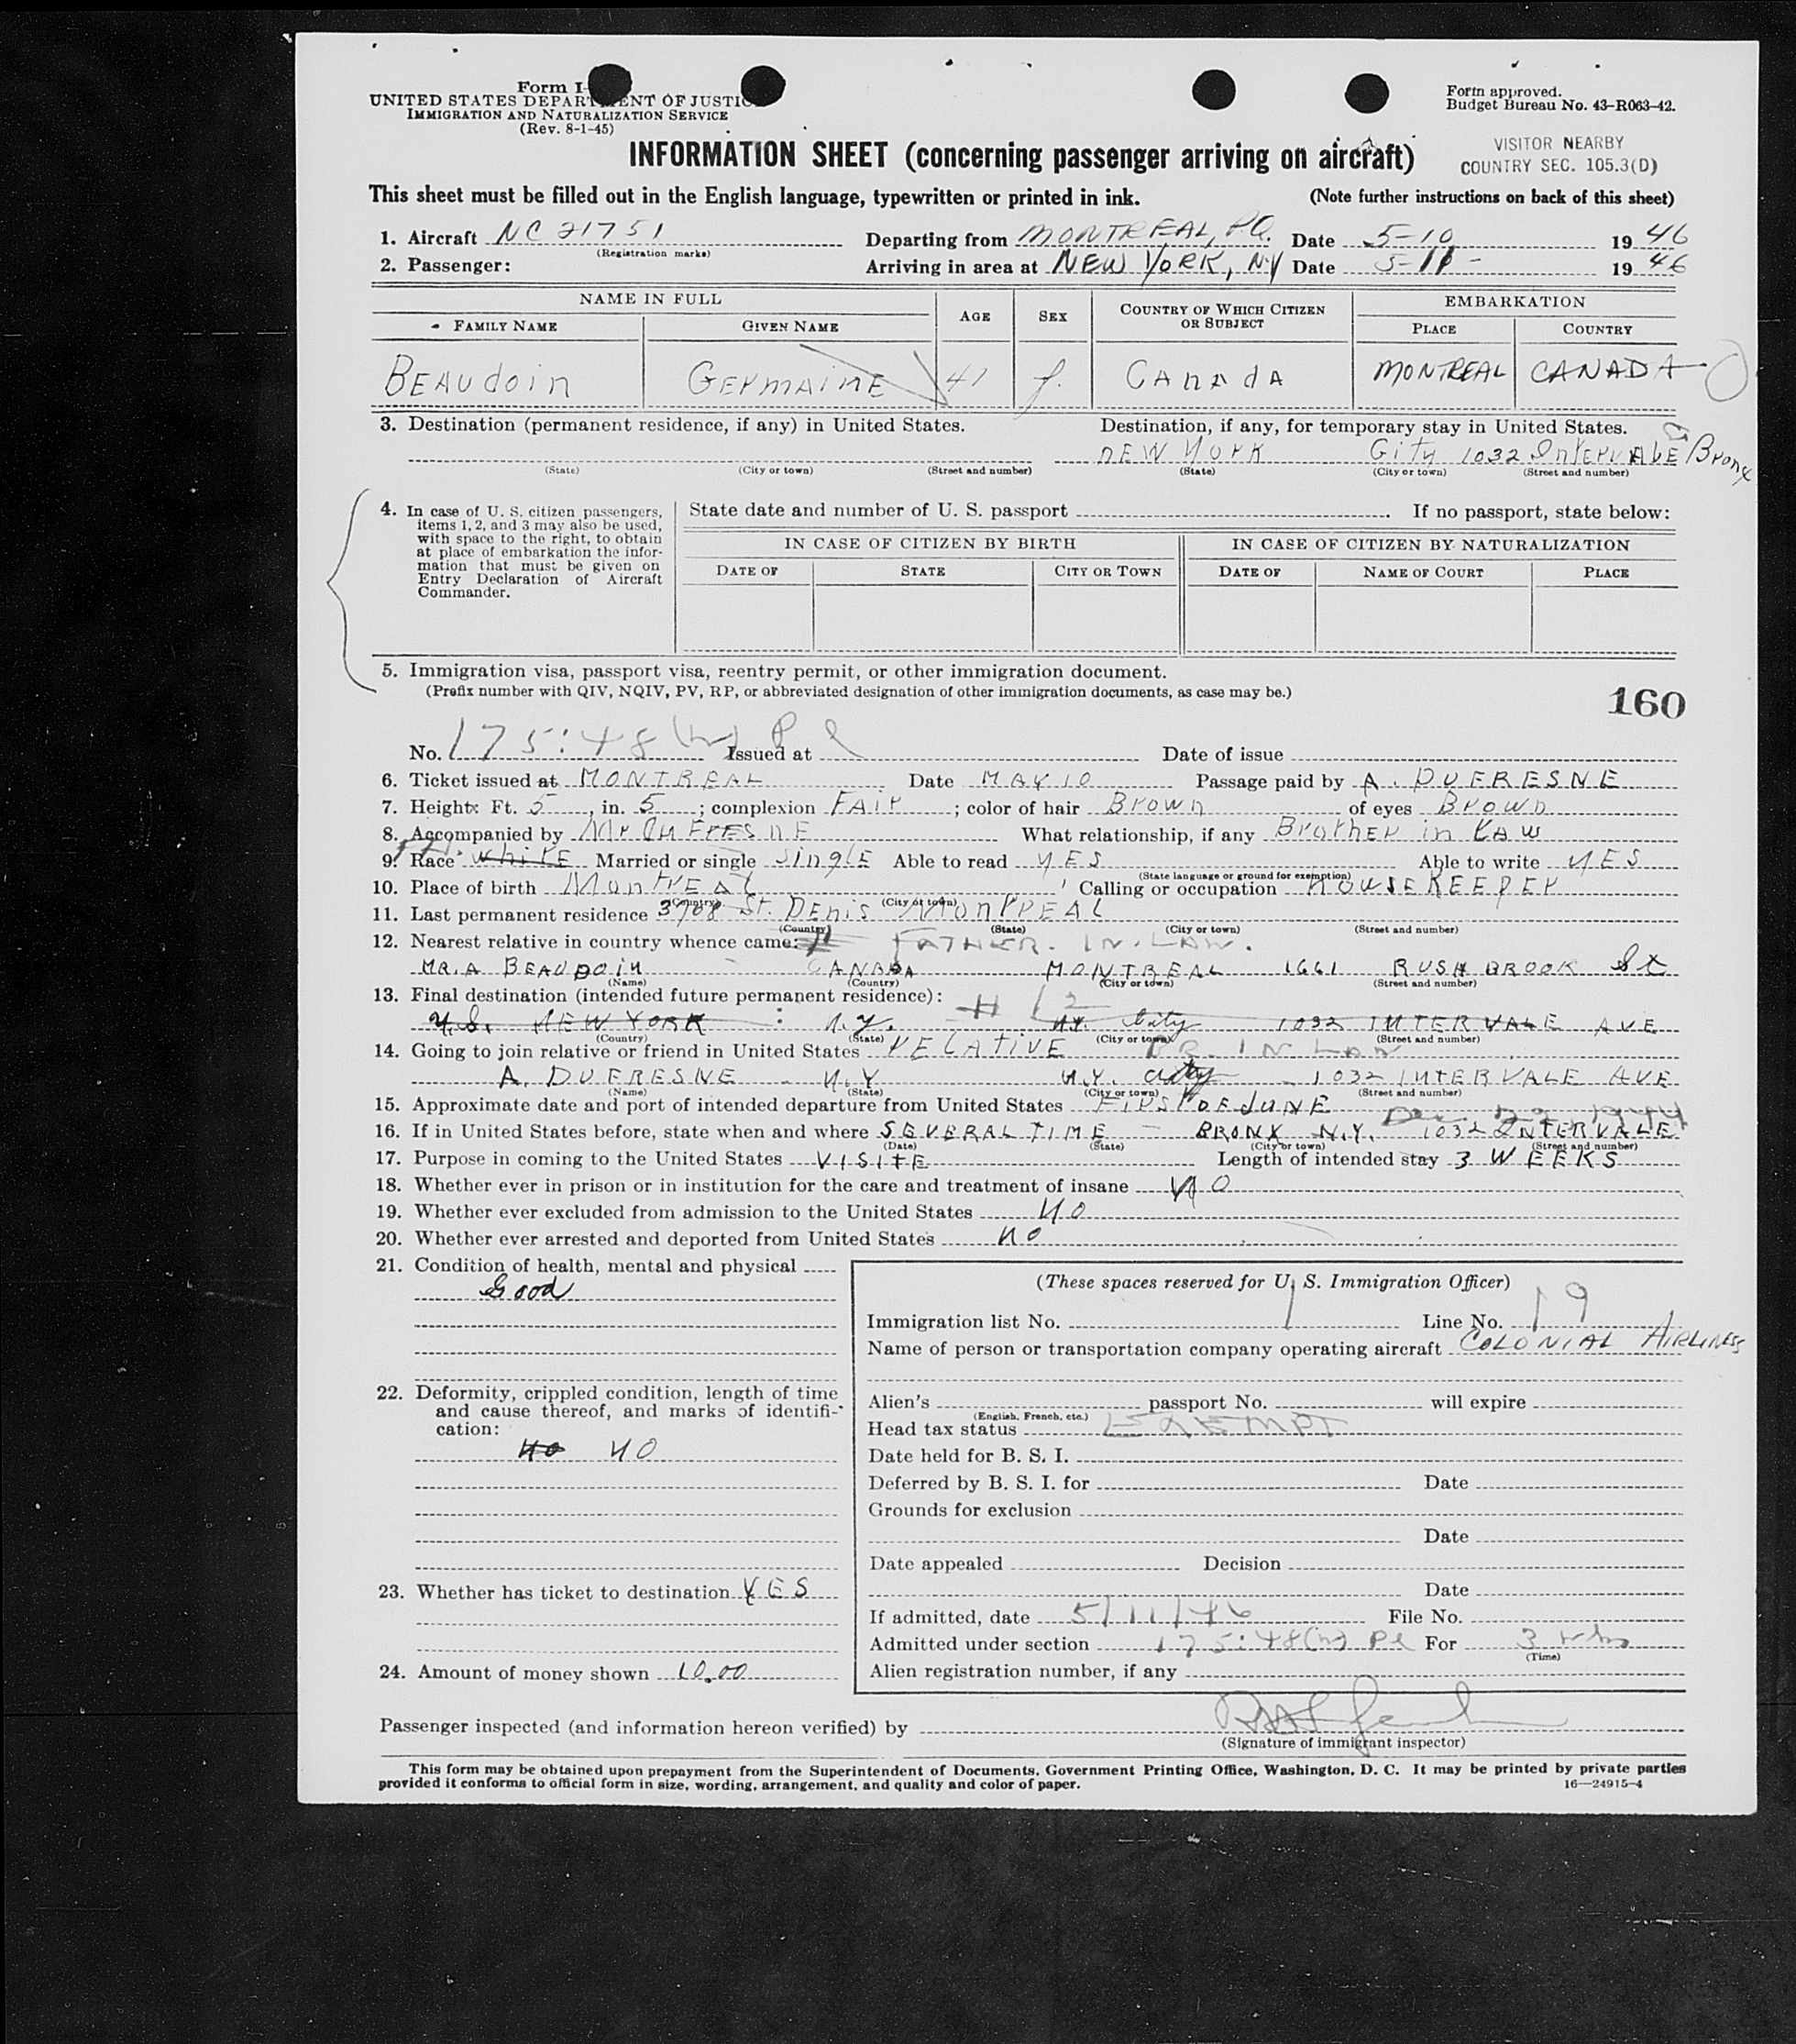 Form I-
UNITED STATES DEPARTMENT OF JUSTICE
IMMIGRATION AND NATURALIZATION SERVICE
(Rev. 8-1-45)
Form approved.
Budget Bureau No. 43-R063-42.
VISITOR NEARBY
COUNTRY SEC. 105.3(D)
INFORMATION SHEET (concerning passenger arriving on aircraft)
This sheet must be filled out in the English language, typewritten or printed in ink. (Note further instructions on back of this sheet)
1. Aircraft NC 21751 Departing from MONTREAL, PQ. Date 5-10 1946
(Registration marks)
2. Passenger: Arriving in area at NEW YORK, NY Date 5-11- 1946
NAME IN FULL AGE SEX COUNTRY OF WHICH CITIZEN OR SUBJECT EMBARKATION
FAMILY NAME GIVEN NAME PLACE COUNTRY
BEAUDOIN GERMAINE 41 f. CANADA MONTREAL CANADA
3. Destination (permanent residence, if any) in United States. Destination, if any, for temporary stay in United States.
NEW YORK City 1032 INTERVALE Bronx
(State) (City or town) (Street and number) (State) (City or town) (Street and number)
4. In case of U. S. citizen passengers, items 1, 2, and 3 may also be used, with space to the right, to obtain at place of embarkation the information that must be given on Entry Declaration of Aircraft Commander.
State date and number of U. S. passport If no passport, state below:
IN CASE OF CITIZEN BY BIRTH IN CASE OF CITIZEN BY NATURALIZATION
DATE OF STATE CITY OR TOWN DATE OF NAME OF COURT PLACE
5. Immigration visa, passport visa, reentry permit, or other immigration document.
(Prefix number with QIV, NQIV, PV, RP, or abbreviated designation of other immigration documents, as case may be.)
160
No. 175:48 Issued at Date of issue
6. Ticket issued at MONTREAL Date MAY 10 Passage paid by A. DUFRESNE
7. Height: Ft. 5, in. 5; complexion FAIR; color of hair BROWN of eyes BROWN
8. Accompanied by Mr DUFRESNE What relationship, if any BROTHER IN LAW
9. Race WHITE Married or single SINGLE Able to read YES Able to write YES
(State language or ground for exemption)
10. Place of birth MONTREAL Calling or occupation HOUSEKEEPER
(Country) (City or town)
11. Last permanent residence 3708 St. DENIS MONTREAL
(Country) (State) (City or town) (Street and number)
12. Nearest relative in country whence came: FATHER. IN. LAW.
MR. A BEAUDOIN CANADA MONTREAL 1661 RUSHBROOK St
(Name) (Country) (City or town) (Street and number)
13. Final destination (intended future permanent residence):
U.S. NEW YORK : N.Y. N.Y. City 1032 INTERVALE AVE
(Country) (State) (City or town) (Street and number)
14. Going to join relative or friend in United States RELATIVE BR. IN LAW
A. DUFRESNE N.Y N.Y. City 1032 INTERVALE AVE
(Name) (State) (City or town) (Street and number)
15. Approximate date and port of intended departure from United States FIRST OF JUNE
16. If in United States before, state when and where SEVERAL TIME - BRONX N.Y. 1032 INTERVALE
(Date) (State) (City or town) (Street and number)
17. Purpose in coming to the United States VISITE Length of intended stay 3 WEEKS
18. Whether ever in prison or in institution for the care and treatment of insane NO
19. Whether ever excluded from admission to the United States NO
20. Whether ever arrested and deported from United States NO
21. Condition of health, mental and physical
Good
22. Deformity, crippled condition, length of time and cause thereof, and marks of identification:
NO NO
23. Whether has ticket to destination YES
24. Amount of money shown 10.00
(These spaces reserved for U. S. Immigration Officer)
Immigration list No. 1 Line No. 19
Name of person or transportation company operating aircraft COLONIAL AIRLINES
Alien's passport No. will expire
(English, French, etc.)
Head tax status EXEMPT
Date held for B. S. I.
Deferred by B. S. I. for Date
Grounds for exclusion
Date
Date appealed Decision
Date
If admitted, date 5/11/46 File No.
Admitted under section 175:48 For 3
(Time)
Alien registration number, if any
Passenger inspected (and information hereon verified) by
(Signature of immigrant inspector)
This form may be obtained upon prepayment from the Superintendent of Documents, Government Printing Office, Washington, D. C. It may be printed by private parties
provided it conforms to official form in size, wording, arrangement, and quality and color of paper. 16—24915-4